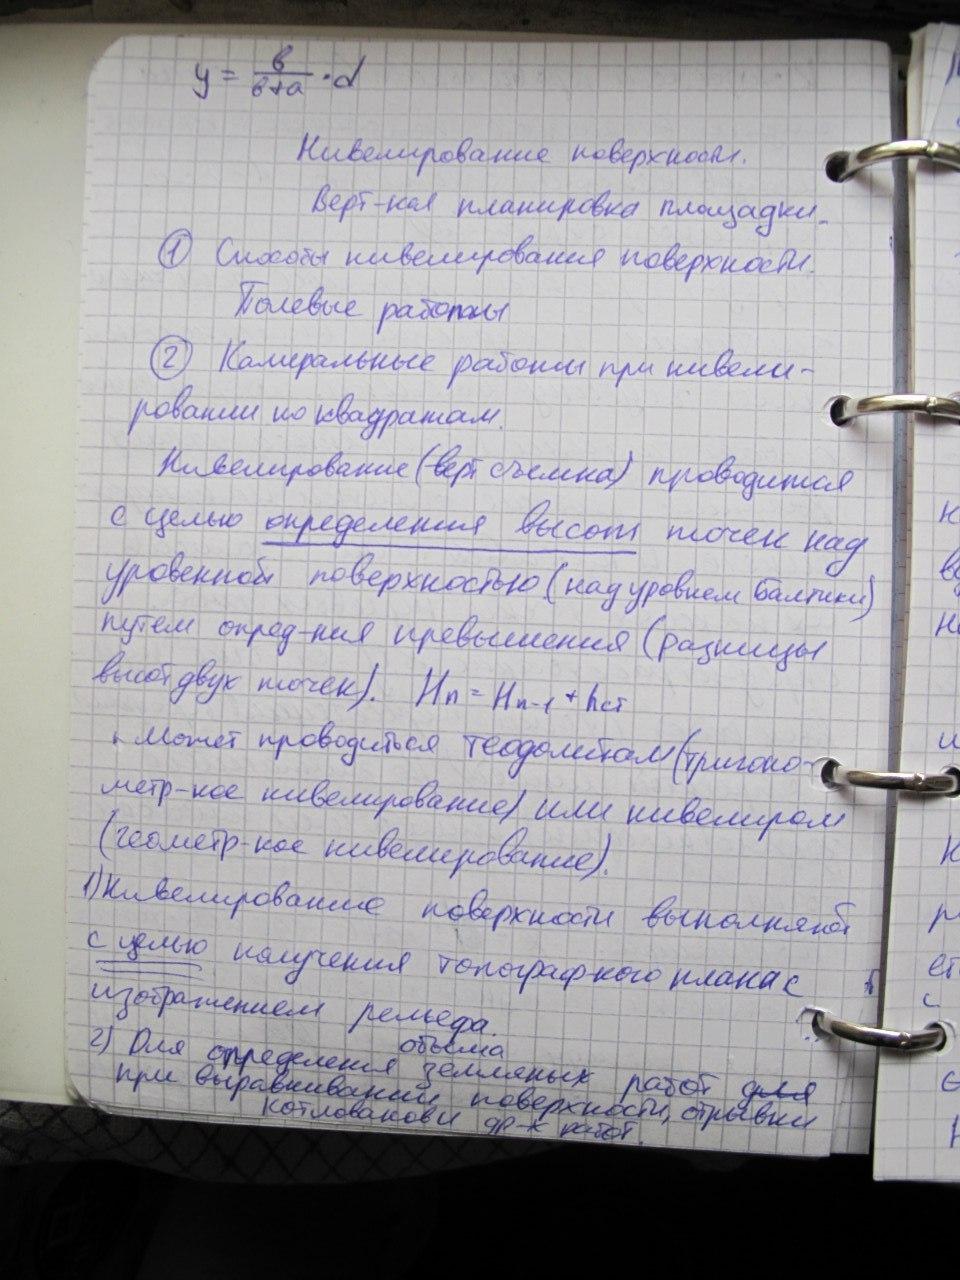 y = в/(в+а) · d
Нивелирование поверхности.
Верт-ная планировка площадки.
① Способы нивелирования поверхности.
Полевые работы
② Камеральные работы при нивели-
ровании по квадратам.
Нивелирование (верт съемка) проводится
с целью определения высот точек над
уровенной поверхностью (над уровнем Балтики)
путем опред-ния превышения (разницы
высот двух точек). Hn = Hn-1 + hст
Может проводиться теодолитом (тригоно-
метр-кое нивелирование) или нивелиром
(геометр-кое нивелирование).
1) Нивелирование поверхности выполняют
с целью получения топограф-кого плана с
изображением рельефа.
объема
2) Для определения земляных работ для
при выравнивании поверхности, отрывки
котлованов и др-х работ.